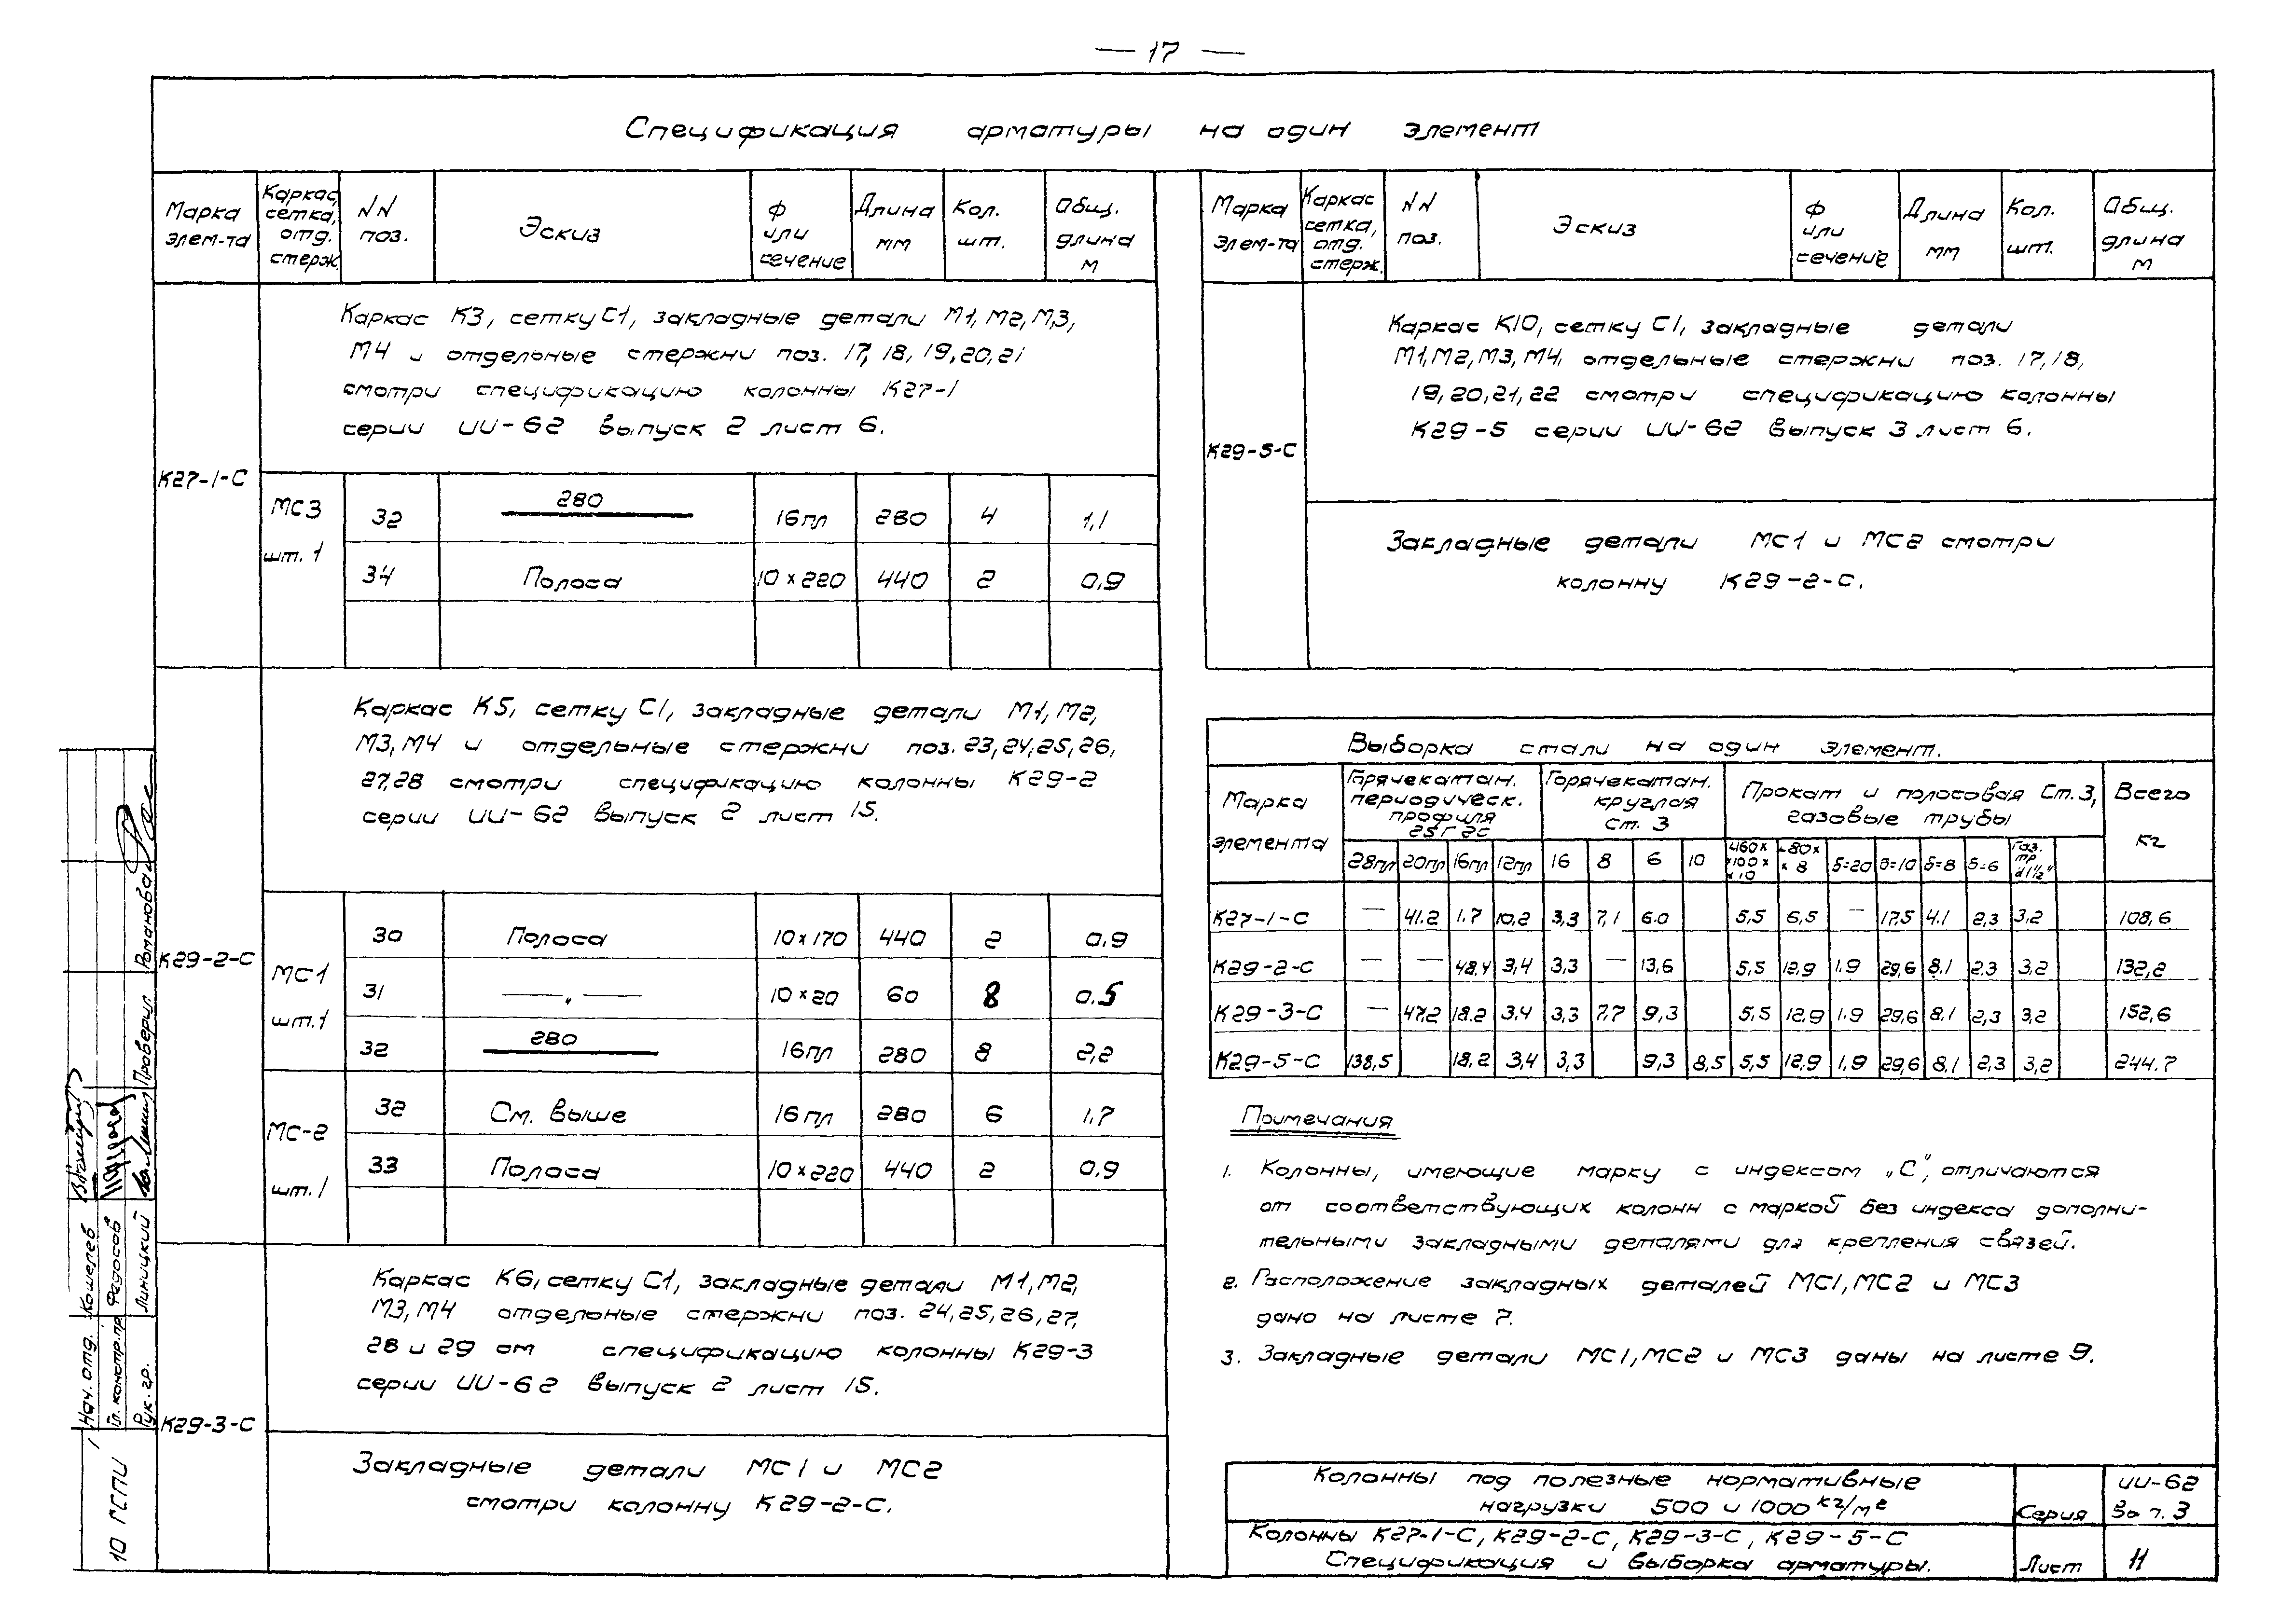 — 17 —
Спецификация арматуры на один элемент
Марка элем-та | Каркас, сетка, отд. стерж. | NN поз. | Эскиз | Ф или сечение | Длина мм | Кол. шт. | Общ. длина м
К27-1-С
Каркас К3, сетку С1, закладные детали М1, М2, М3,
М4 и отдельные стержни поз. 17, 18, 19, 20, 21
смотри спецификацию колонны К27-1
серии ИИ-62 выпуск 2 лист 6.
МС3 шт. 1
32 | 280 | 16пл | 280 | 4 | 1,1
34 | Полоса | 10×220 | 440 | 2 | 0,9
К29-2-С
Каркас К5, сетку С1, закладные детали М1, М2,
М3, М4 и отдельные стержни поз. 23, 24, 25, 26,
27, 28 смотри спецификацию колонны К29-2
серии ИИ-62 выпуск 2 лист 15.
МС1 шт. 1
30 | Полоса | 10×170 | 440 | 2 | 0,9
31 | —„— | 10×20 | 60 | 8 | 0.5
32 | 280 | 16пл | 280 | 8 | 2,2
МС-2 шт. 1
32 | См. выше | 16пл | 280 | 6 | 1,7
33 | Полоса | 10×220 | 440 | 2 | 0,9
К29-3-С
Каркас К6, сетку С1, закладные детали М1, М2,
М3, М4 отдельные стержни поз. 24, 25, 26, 27,
28 и 29 см спецификацию колонны К29-3
серии ИИ-62 выпуск 2 лист 15.
Закладные детали МС1 и МС2
смотри колонну К29-2-С.
Марка элем-та | Каркас сетка, отд. стерж. | NN поз. | Эскиз | Ф или сечение | Длина мм | Кол. шт. | Общ. длина м
К29-5-С
Каркас К10, сетку С1, закладные детали
М1, М2, М3, М4, отдельные стержни поз. 17, 18,
19, 20, 21, 22 смотри спецификацию колонны
К29-5 серии ИИ-62 выпуск 3 лист 6.
Закладные детали МС1 и МС2 смотри
колонну К29-2-С.
Выборка стали на один элемент.
Марка элемента | Горячекатан. периодическ. профиля 25Г2С | Горячекатан. круглая Ст. 3 | Прокат и полосовая Ст. 3, газовые трубы | Всего кг
28пл | 20пл | 16пл | 12пл | 16 | 8 | 6 | 10 | ∟160××100××10 | ∟80××8 | δ=20 | δ=10 | δ=8 | δ=6 | Газ. тр d 1½"
К27-1-С | — | 41.2 | 1.7 | 10,2 | 3,3 | 7,1 | 6.0 | | 5,5 | 6,5 | — | 17,5 | 4.1 | 2,3 | 3,2 | 108,6
К29-2-С | — | — | 48,4 | 3,4 | 3,3 | — | 13,6 | | 5,5 | 12,9 | 1.9 | 29,6 | 8,1 | 2,3 | 3,2 | 132,2
К29-3-С | — | 47,2 | 18.2 | 3,4 | 3,3 | 7,7 | 9,3 | | 5,5 | 12,9 | 1.9 | 29,6 | 8,1 | 2,3 | 3,2 | 152,6
К29-5-С | 138,5 | | 18,2 | 3,4 | 3,3 | | 9,3 | 8,5 | 5,5 | 12,9 | 1,9 | 29,6 | 8,1 | 2,3 | 3,2 | 244.7
Примечания
1. Колонны, имеющие марку с индексом „С", отличаются
от соответствующих колонн с маркой без индекса дополни-
тельными закладными деталями для крепления связей.
2. Расположение закладных деталей МС1, МС2 и МС3
дано на листе 7.
3. Закладные детали МС1, МС2 и МС3 даны на листе 9.
Колонны под полезные нормативные
нагрузки 500 и 1000 кг/м²
Серия ИИ-62
Колонны К27-1-С, К29-2-С, К29-3-С, К29-5-С
Спецификация и выборка арматуры.
Лист 11
10 ГСПИ
Нач. отд. Кошелев
Гл. констр. пр. Федосов
Рук. гр. Линицкий
Проверил Романова